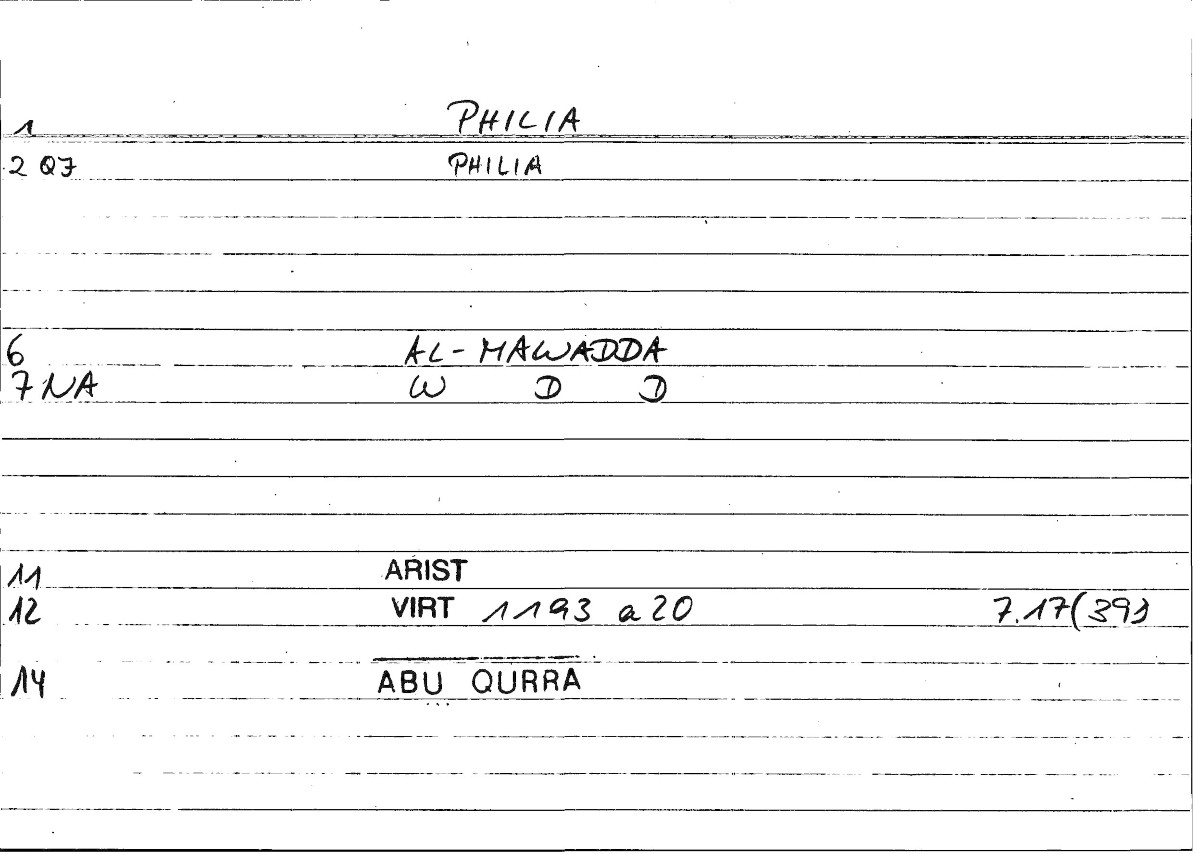 1 PHILIA
2 QF PHILIA
6 AL-MAWADDA
7 NA W D D
11 ARIST
12 VIRT 1193 a 20 7.17(39)
14 ABU QURRA